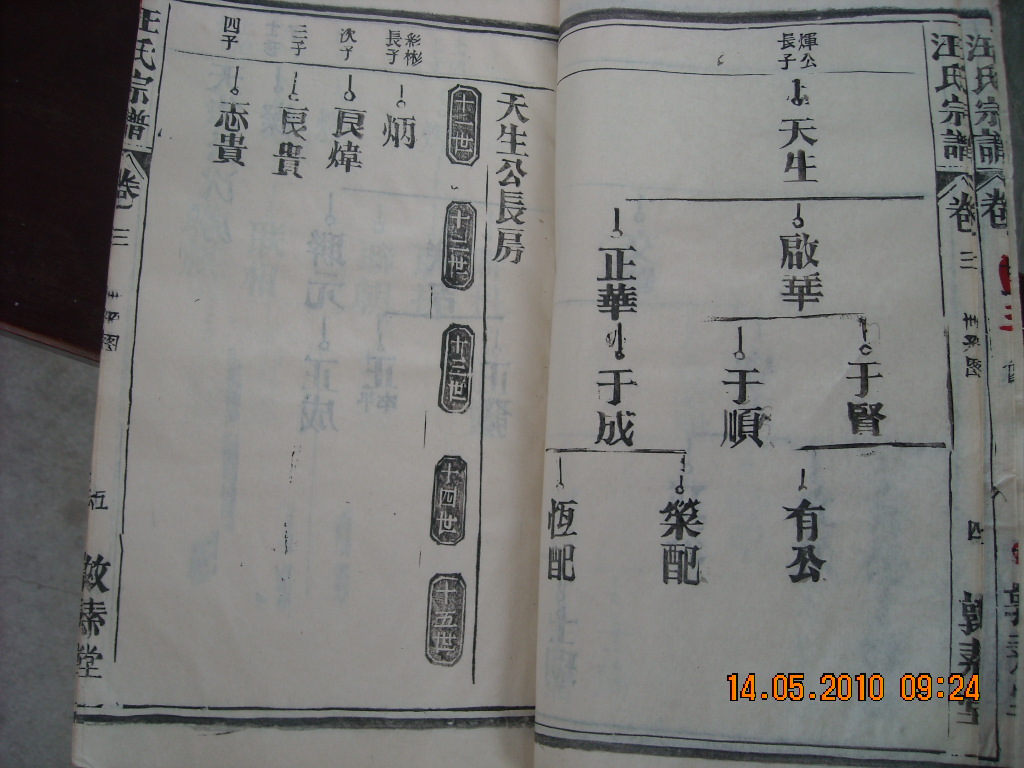 汪氏宗譜
卷三
汪氏宗譜
卷三
世系图
四
煇公
長子
天生
啟華
正華
于賢
于順
于成
有公
榮配
恆配
天生公長房
十二世
十三世
十四世
十五世
彩彬
長子
炳
次子
良煒
三子
良貴
四子
志貴
汪氏宗譜
卷三
五
敦素堂
14.05.2010 09:24